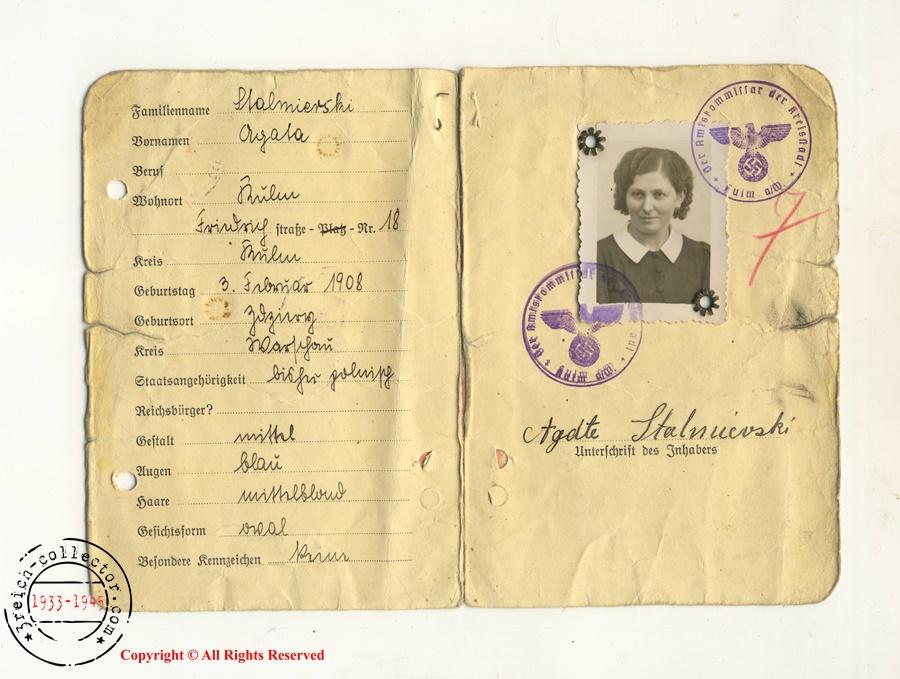 Familienname Stalmierski
Vornamen Agata
Beruf
Wohnort Kulm
Friedrich straße - Platz - Nr. 18
Kreis Kulm
Geburtstag 3. Februar 1908
Geburtsort
Kreis Warschau
Staatsangehörigkeit bisher polnisch
Reichsbürger?
Gestalt mittel
Augen blau
Haare mittelblond
Gesichtsform oval
Besondere Kennzeichen keine
Der Amtskommissar der Kreisstadt
Kulm a/W.
7
Der Amtskommissar
Kulm a/W.
Stalmierski
Unterschrift des Inhabers
3reich-collector.com
1933-1945
Copyright © All Rights Reserved